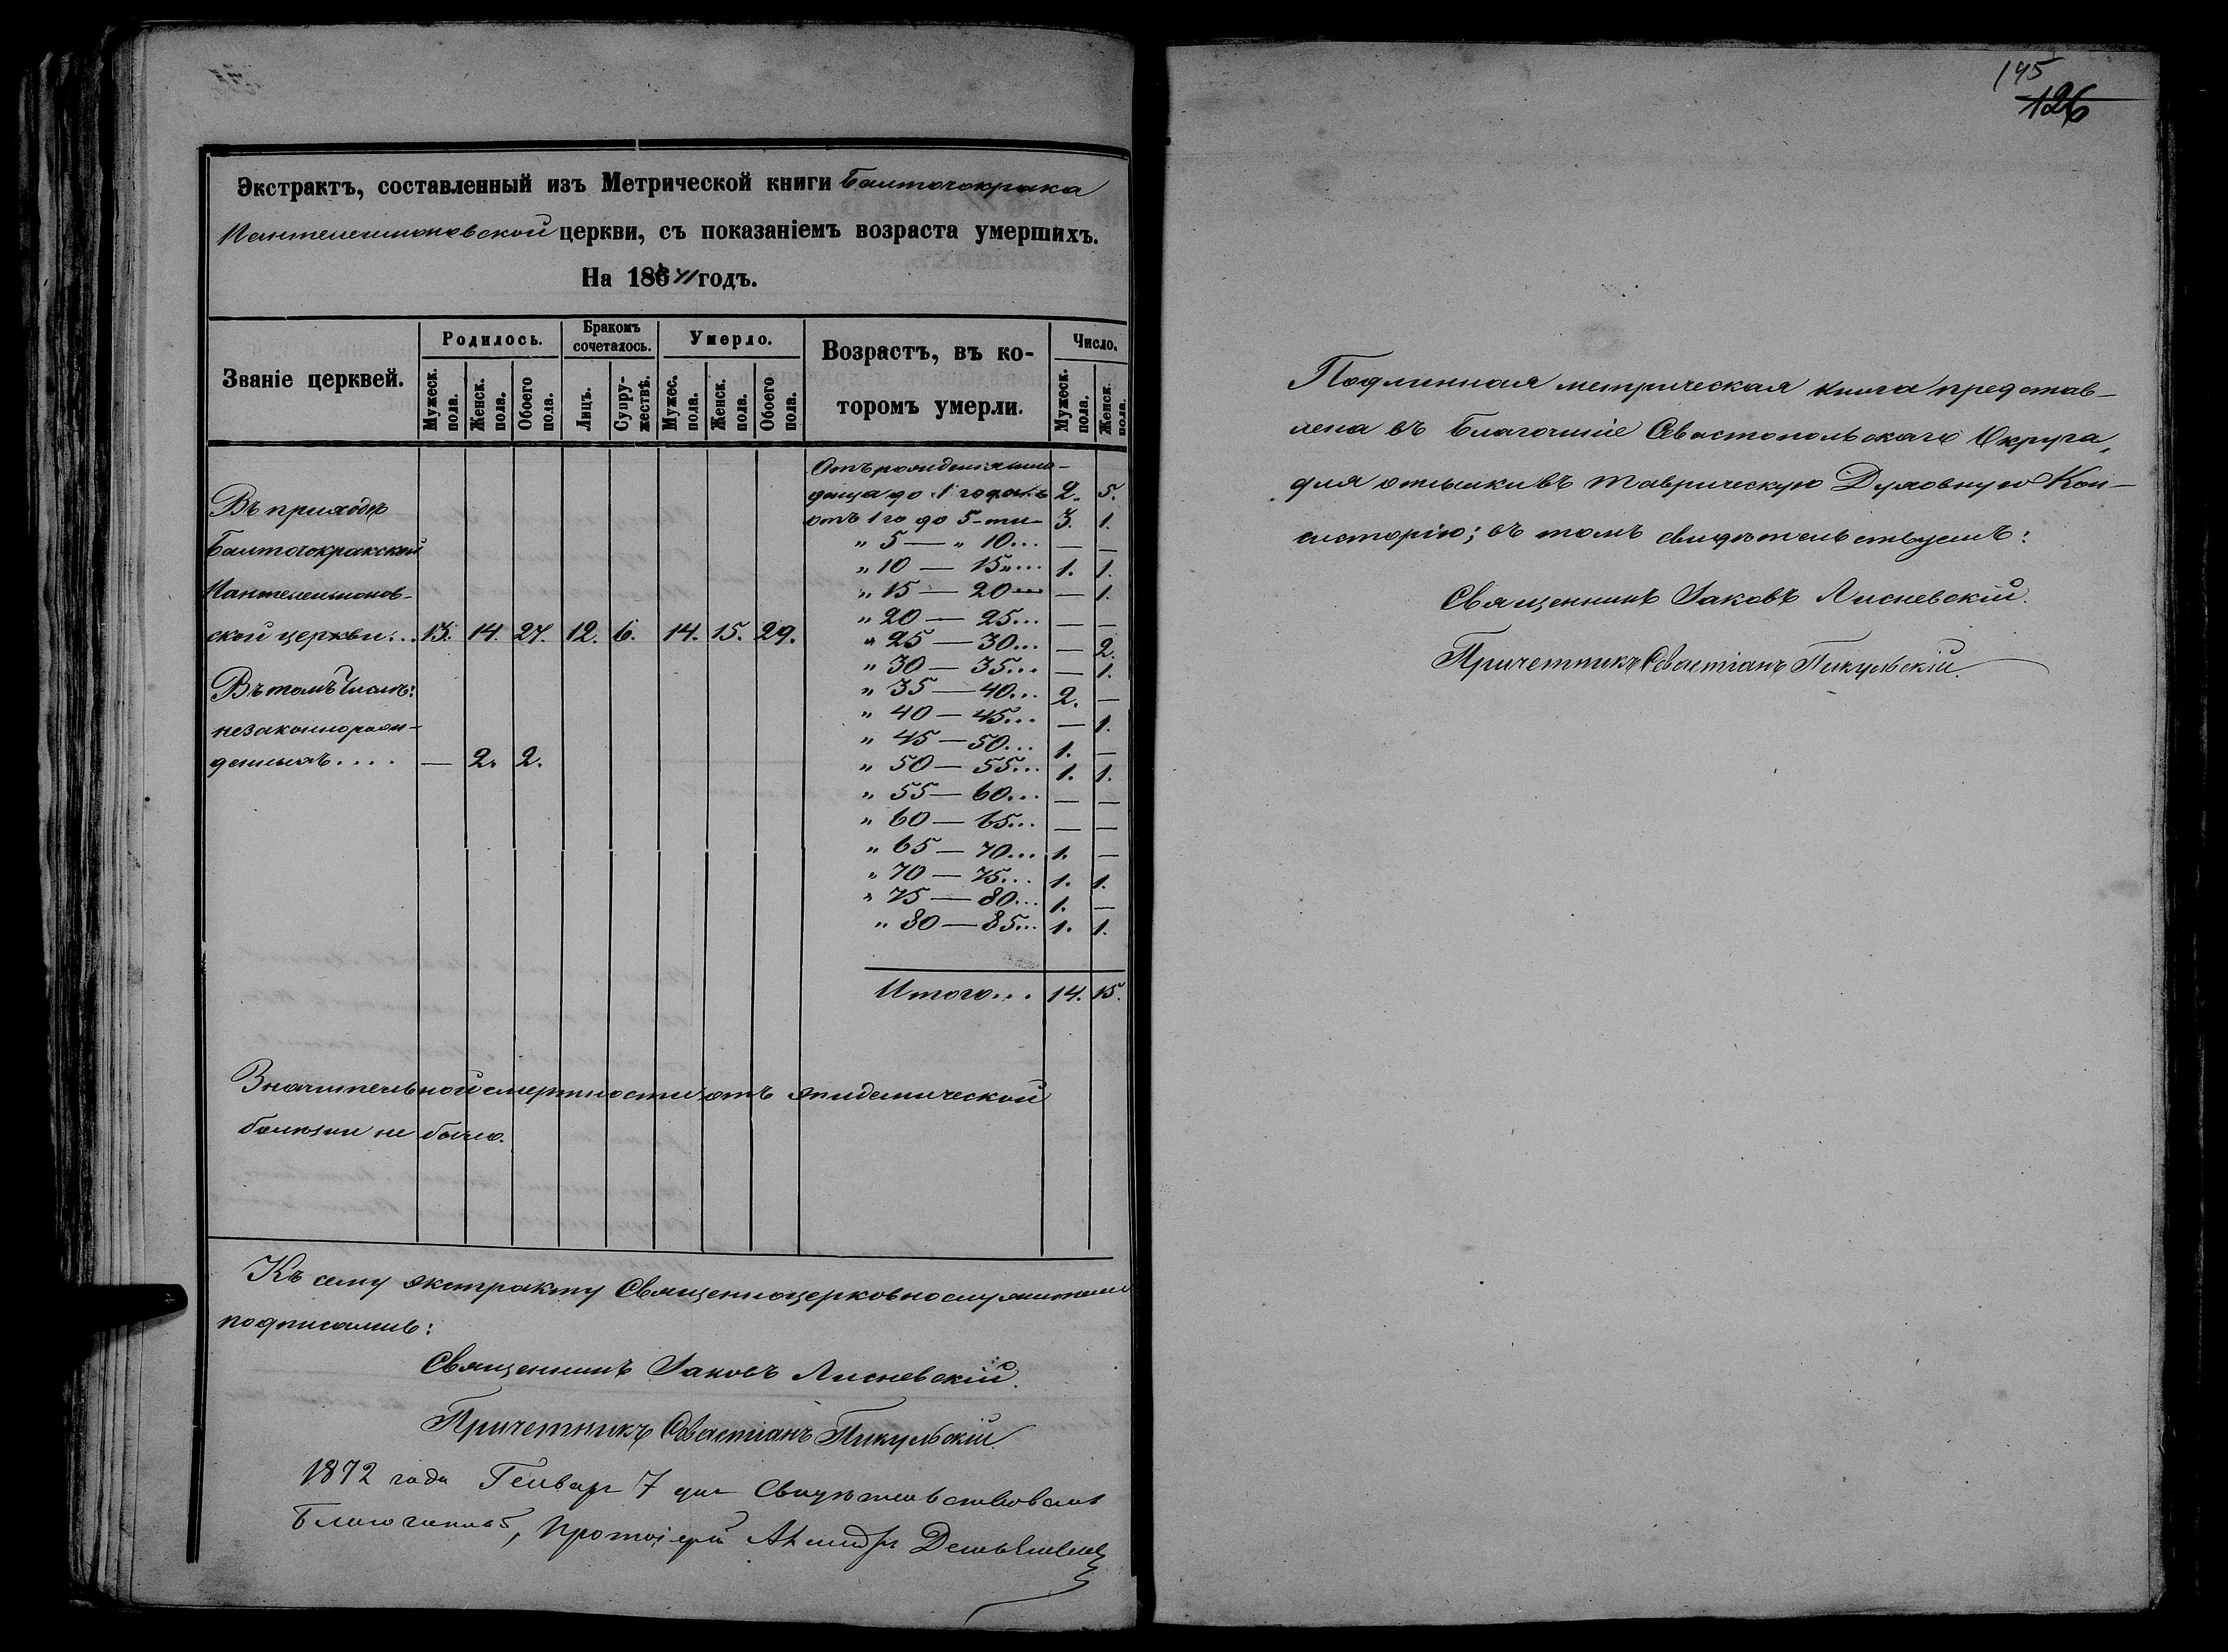 Экстрактъ, составленный изъ Метрической книги Балточокрака
Пантелеимоновской церкви, съ показаніемъ возраста умершихъ.
На 1871 годъ.
Званіе церквей.
Родилось.
Мужеск. пола.
Женск. пола.
Обоего пола.
Бракомъ сочеталось.
Лицъ.
Супружествъ.
Умерло.
Мужес. пола.
Женск. пола.
Обоего пола.
Возрастъ, въ ко-
торомъ умерли.
Число.
Мужеск. пола.
Женск. пола.
Въ приходѣ
Балточокракской
Пантелеимонов-
ской церкви... 13. 14. 27. 12. 6. 14. 15. 29.
Въ томъ числѣ:
незаконнорож-
денныхъ.... — 2. 2.
Отъ рожденія мла-
денца до 1 года 2. 5.
отъ 1го до 5-ти 3. 1.
" 5 — " 10... — —
" 10 — 15"... 1. 1.
" 15 — 20... — 1.
" 20 — 25... — —
" 25 — 30... — 2.
" 30 — 35... — 1.
" 35 — 40... 2. —
" 40 — 45... — 1.
" 45 — 50... 1. —
" 50 — 55... 1. 1.
" 55 — 60... — —
" 60 — 65... — —
" 65 — 70... 1. —
" 70 — 75... 1. 1.
" 75 — 80... 1. —
" 80 — 85... 1. 1.
Итого... 14. 15.
Значительной смертности отъ эпидемической
болѣзни не было.
Къ сему экстракту Священноцерковнослужители
подписались:
Священникъ Іаковъ Лисневскій.
Причетникъ Севастіанъ Пикульскій.
1872 года Генваря 7 дня Свидѣтельствовалъ
Благочинный, Протоіерей
145
126
Подлинная метрическая книга представ-
лена въ Благочиніе Севастопольскаго Округа,
для отсылки въ Таврическую Духовную Кон-
систорію; въ томъ свидѣтельствуемъ:
Священникъ Іаковъ Лисневскій.
Причетникъ Севастіанъ Пикульскій.